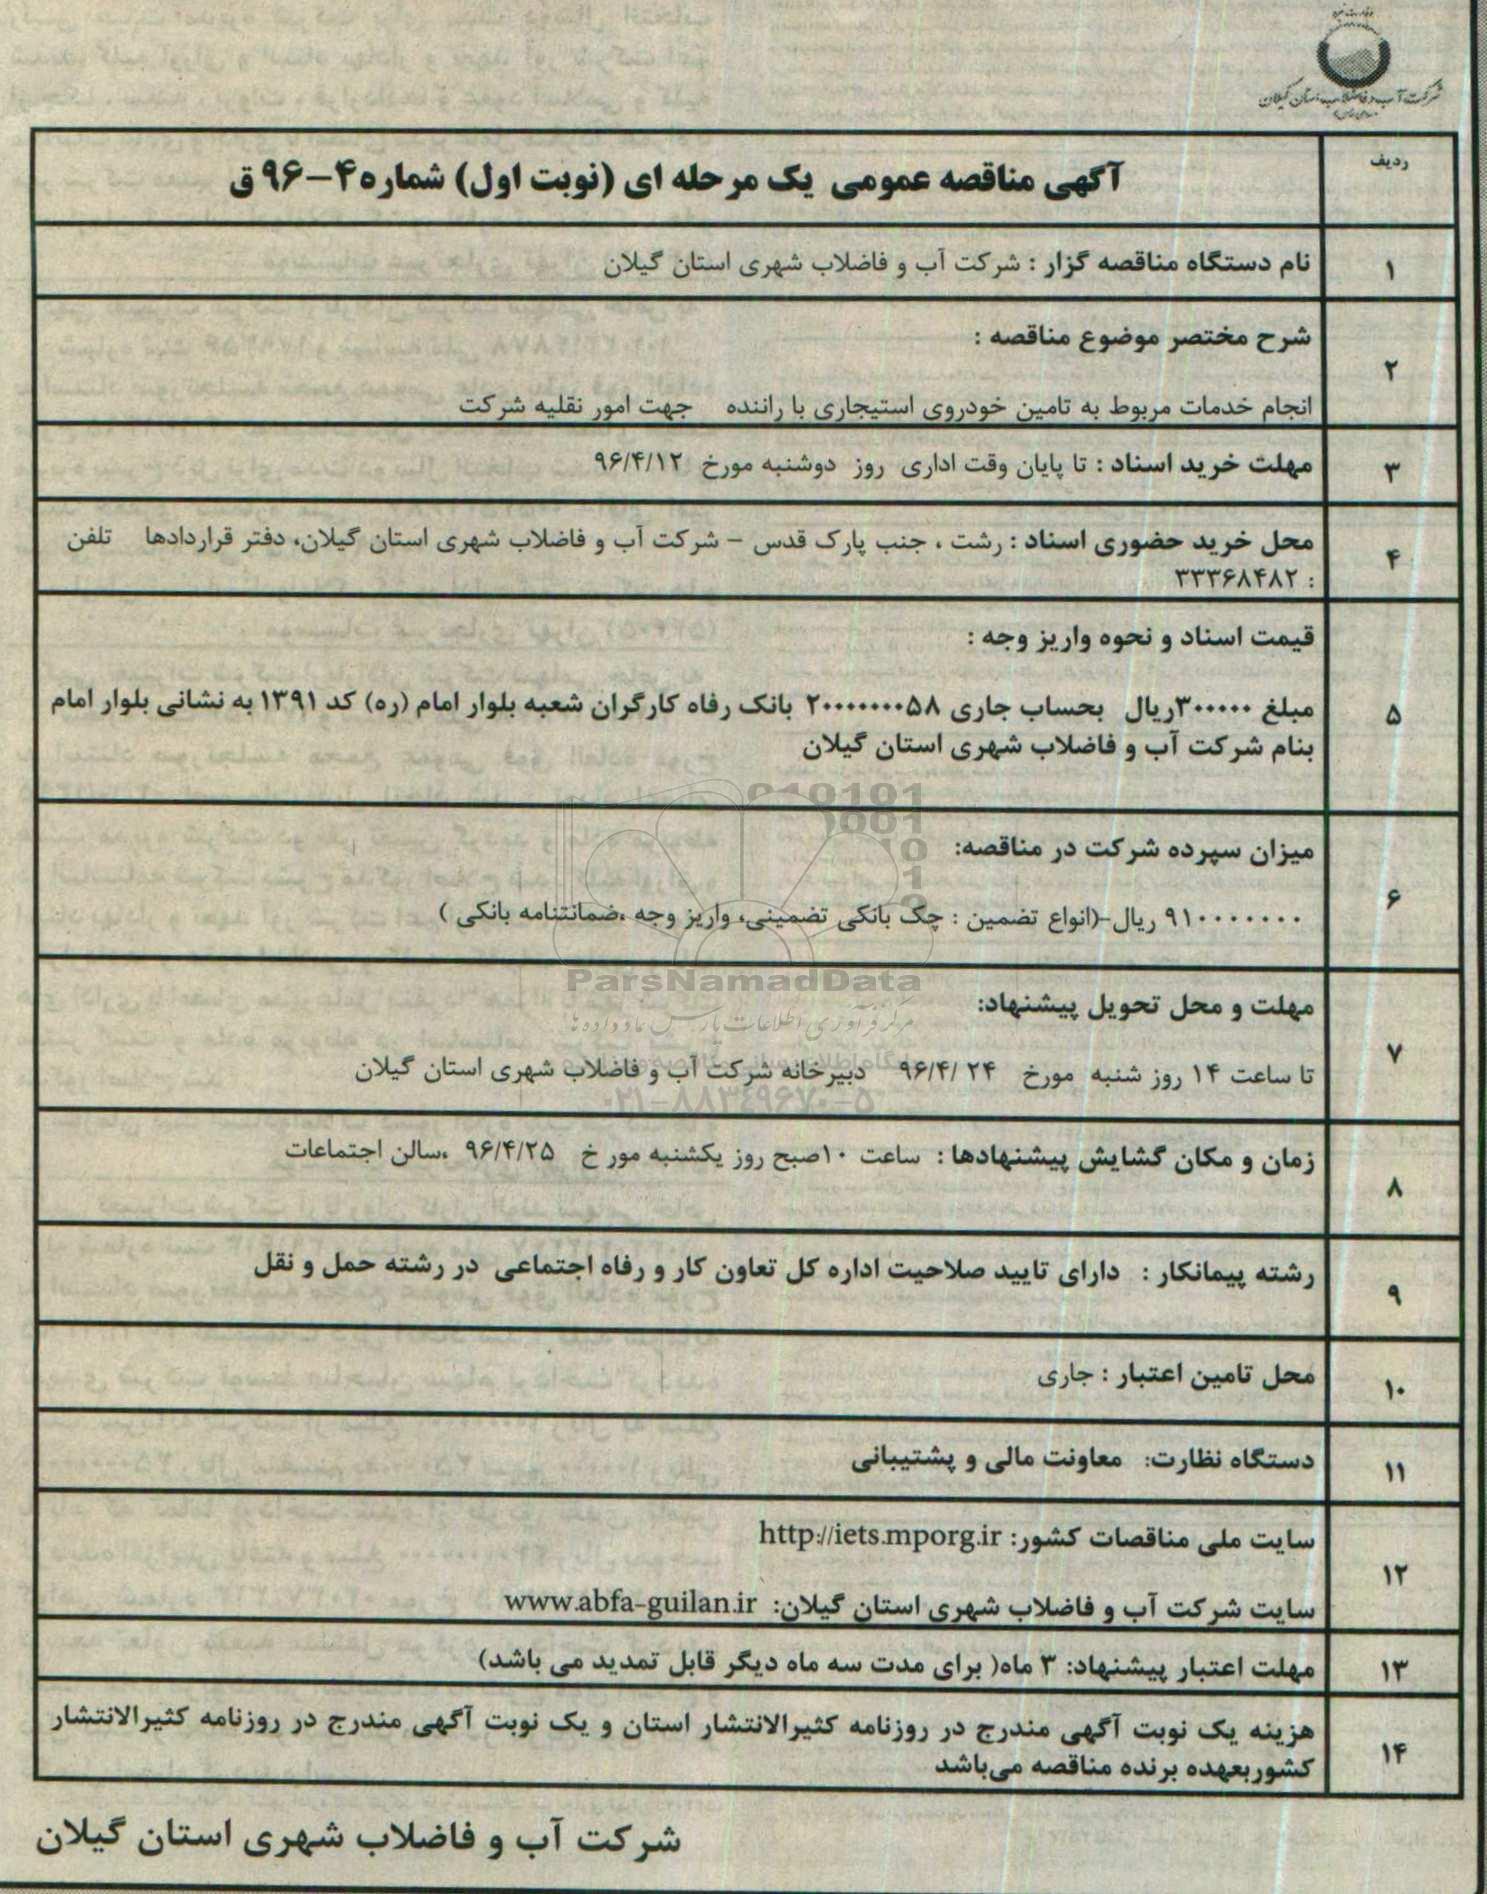 شرکت آب و فاضلاب استان گیلان
ردیف
آگهی مناقصه عمومی یک مرحله ای (نوبت اول) شماره ۴-۹۶ ق
۱
نام دستگاه مناقصه گزار : شرکت آب و فاضلاب شهری استان گیلان
۲
شرح مختصر موضوع مناقصه :
انجام خدمات مربوط به تامین خودروی استیجاری با راننده جهت امور نقلیه شرکت
۳
مهلت خرید اسناد : تا پایان وقت اداری روز دوشنبه مورخ ۹۶/۴/۱۲
۴
محل خرید حضوری اسناد : رشت ، جنب پارک قدس – شرکت آب و فاضلاب شهری استان گیلان، دفتر قراردادها تلفن
: ۳۳۳۶۸۴۸۲
۵
قیمت اسناد و نحوه واریز وجه :
مبلغ ۳۰۰۰۰۰ریال بحساب جاری ۲۰۰۰۰۰۰۰۵۸ بانک رفاه کارگران شعبه بلوار امام (ره) کد ۱۳۹۱ به نشانی بلوار امام
بنام شرکت آب و فاضلاب شهری استان گیلان
۶
میزان سپرده شرکت در مناقصه:
۹۱۰۰۰۰۰۰۰ ریال-(انواع تضمین : چک بانکی تضمینی، واریز وجه ،ضمانتنامه بانکی )
ParsNamadData
مرکز فرآوری اطلاعات پارس نماد داده ها
۰۲۱-۸۸۳۴۹۶۷۰-۵
۷
مهلت و محل تحویل پیشنهاد:
تا ساعت ۱۴ روز شنبه مورخ ۲۴ /۹۶/۴ دبیرخانه شرکت آب و فاضلاب شهری استان گیلان
۸
زمان و مکان گشایش پیشنهادها : ساعت ۱۰صبح روز یکشنبه مور خ ۹۶/۴/۲۵ ،سالن اجتماعات
۹
رشته پیمانکار : دارای تایید صلاحیت اداره کل تعاون کار و رفاه اجتماعی در رشته حمل و نقل
۱۰
محل تامین اعتبار : جاری
۱۱
دستگاه نظارت: معاونت مالی و پشتیبانی
۱۲
سایت ملی مناقصات کشور: http://iets.mporg.ir
سایت شرکت آب و فاضلاب شهری استان گیلان: www.abfa-guilan.ir
۱۳
مهلت اعتبار پیشنهاد: ۳ ماه( برای مدت سه ماه دیگر قابل تمدید می باشد)
۱۴
هزینه یک نوبت آگهی مندرج در روزنامه کثیرالانتشار استان و یک نوبت آگهی مندرج در روزنامه کثیرالانتشار
کشوربعهده برنده مناقصه می‌باشد
شرکت آب و فاضلاب شهری استان گیلان